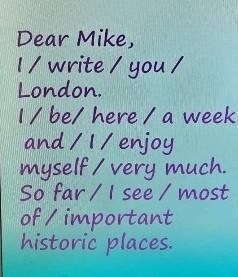 Dear Mike,
I / write / you /
London.
I / be/ here / a week
and / I / enjoy
myself / very much.
So far / I see / most
of / important
historic places.